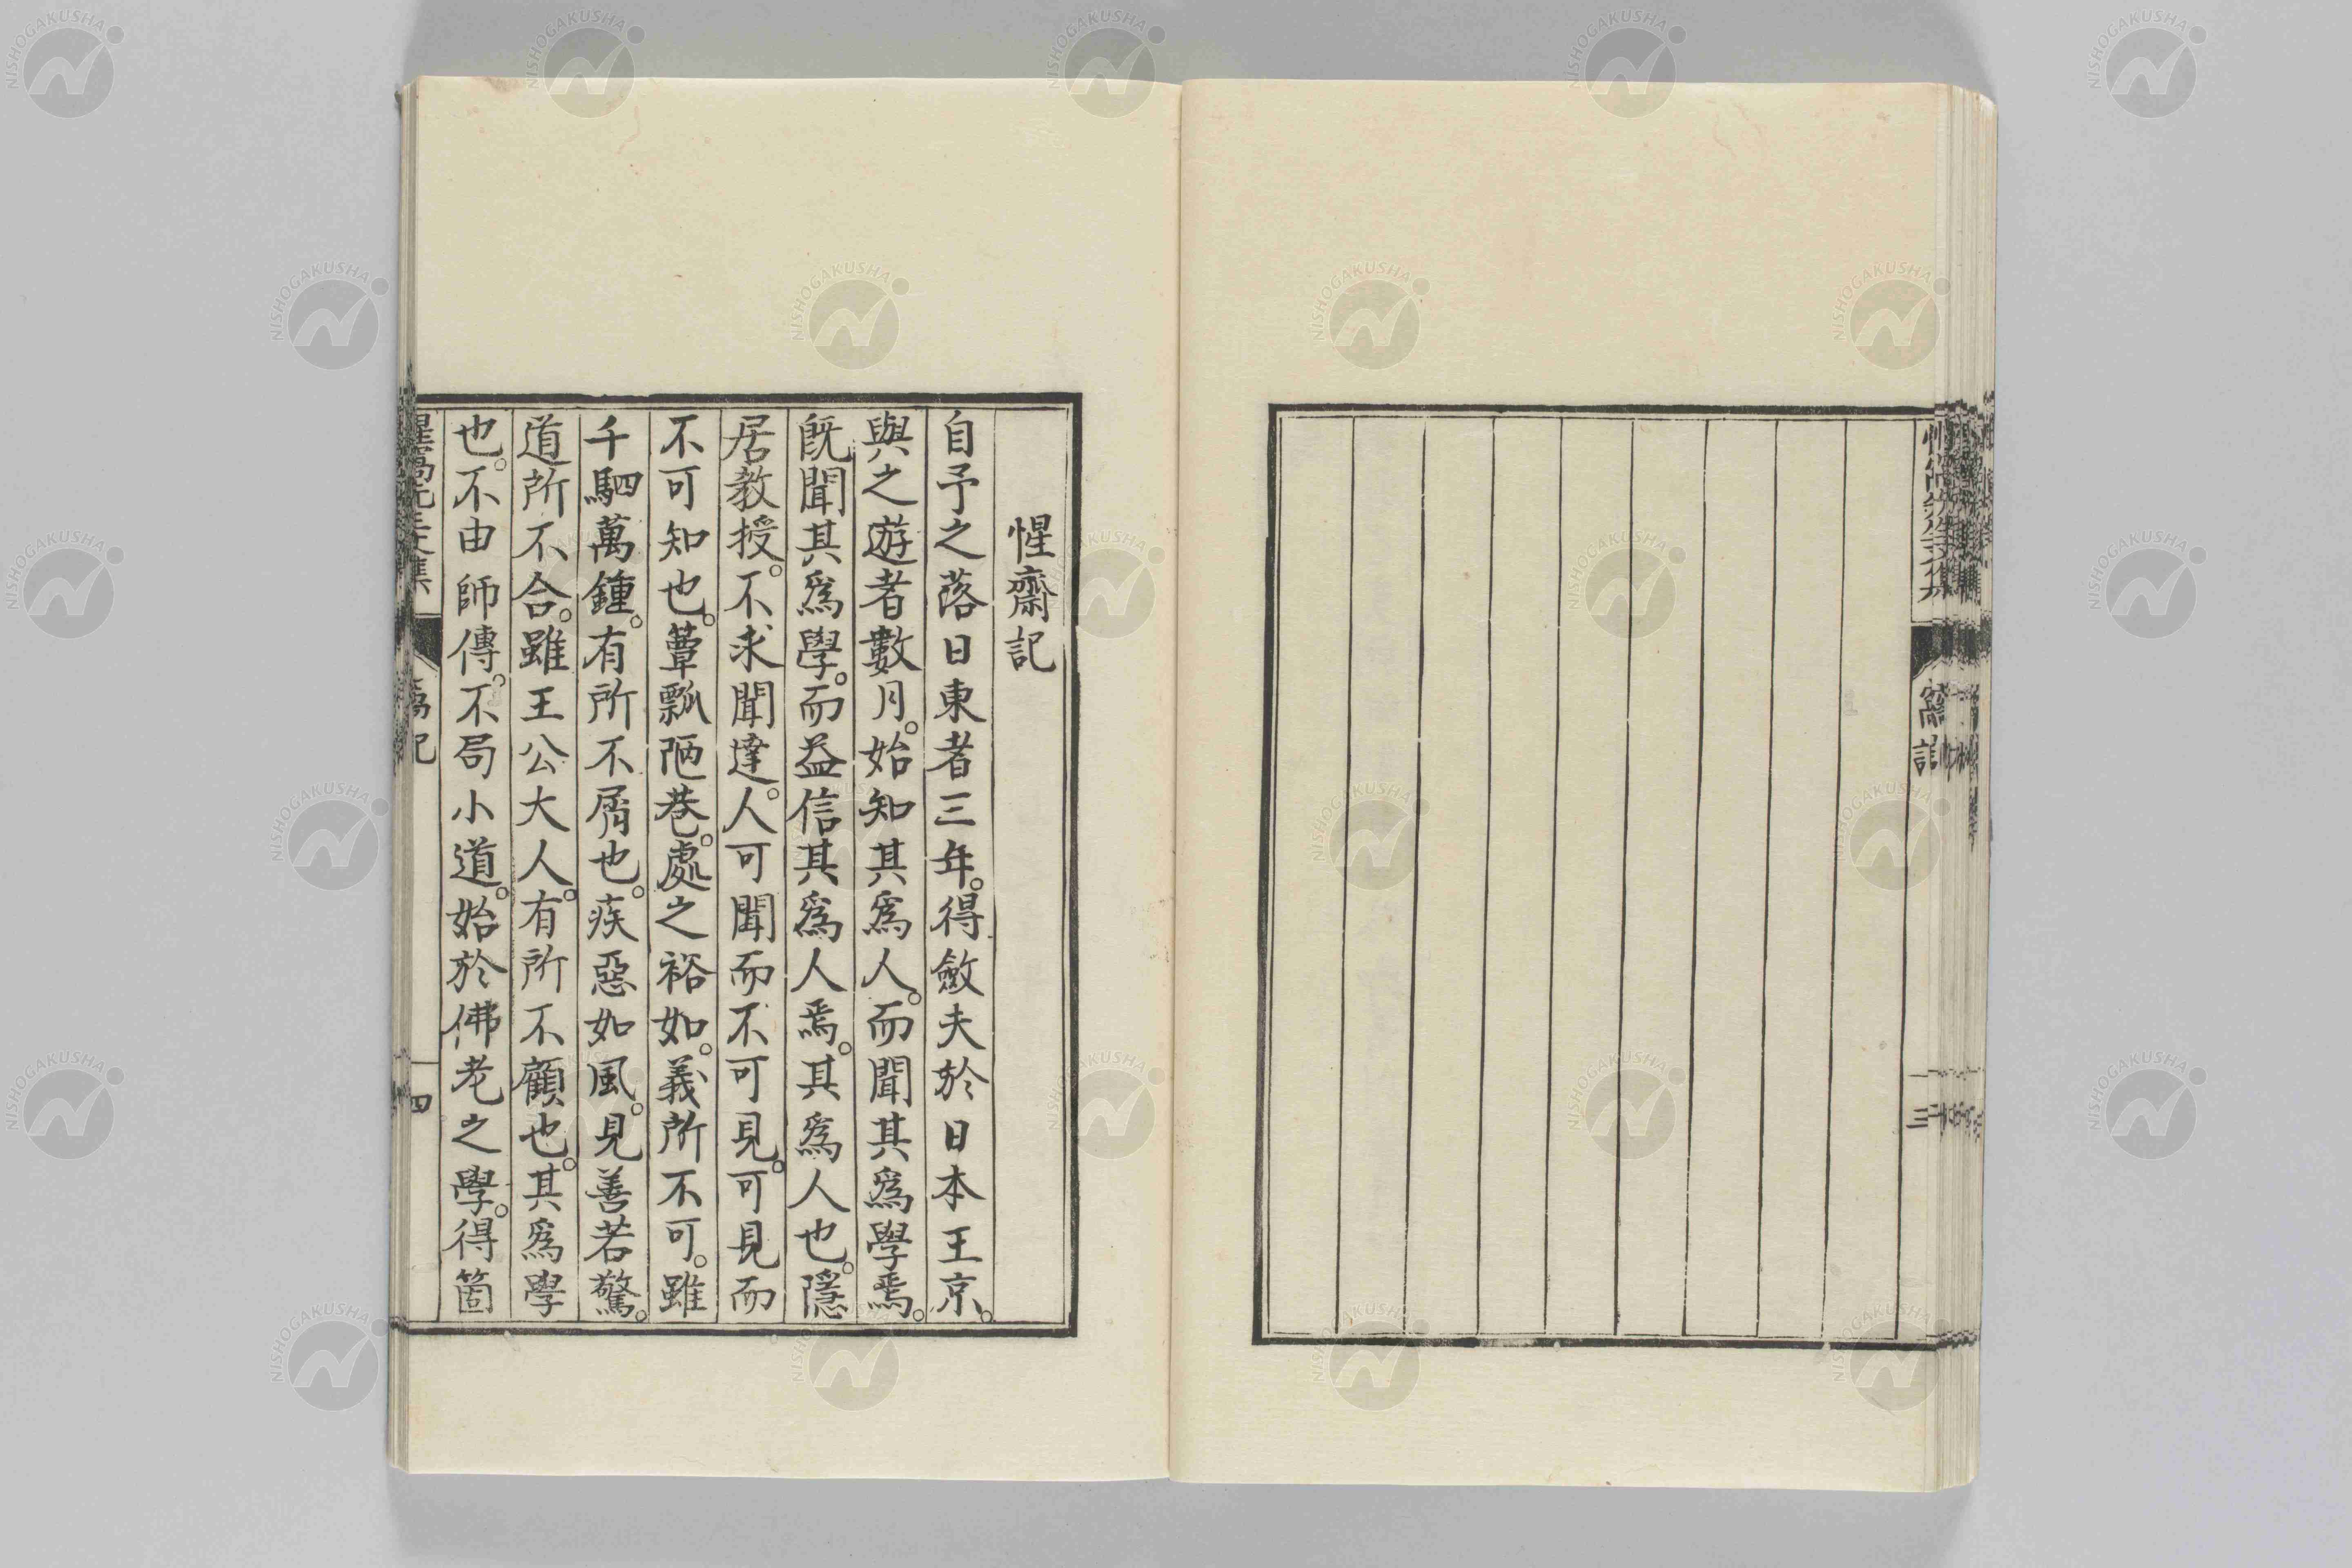 惺齋記
自予之落日東者三年。得斂夫於日本王京。
與之遊者數月。始知其爲人。而聞其爲學焉。
旣聞其爲學。而益信其爲人焉。其爲人也。隱
居敎授。不求聞達。人可聞而不可見。可見而
不可知也。簞瓢陋巷。處之裕如。義所不可。雖
千駟萬鍾。有所不屑也。疾惡如風。見善若驚。
道所不合。雖王公大人。有所不顧也。其爲學
也。不由師傳。不局小道。始於佛老之學。得箇
四
三
NISHOGAKUSHA